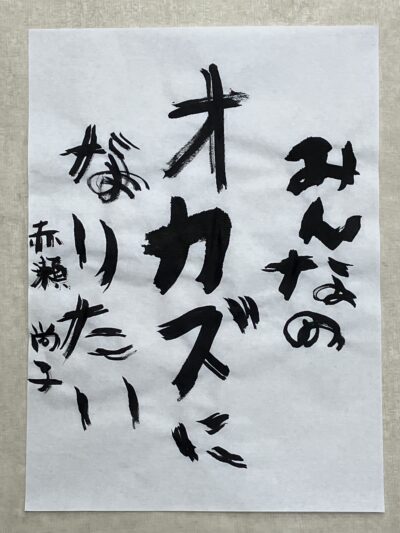 みんなの
オカズに
なりたい
赤瀬尚子